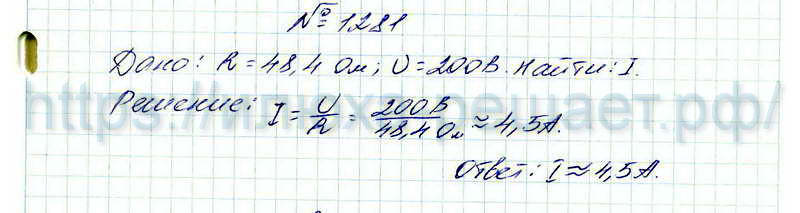 № 1281
Дано: R = 48,4 Ом; U = 200В. Найти: I.
Решение: I = U/R = 200В/48,4 Ом ≈ 4,5А.
Ответ: I ≈ 4,5А.